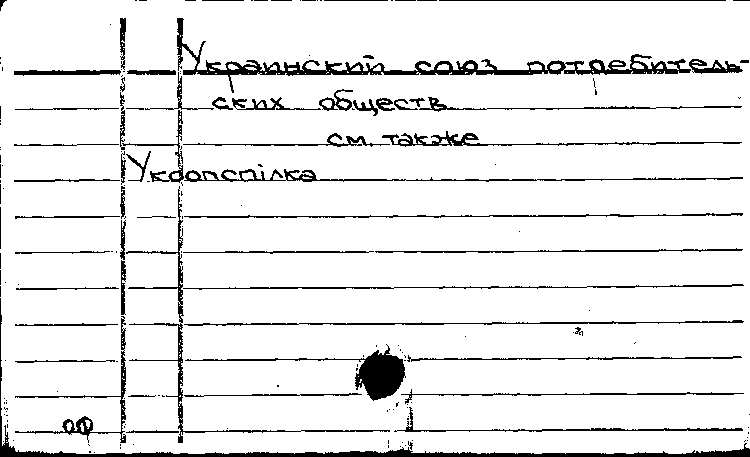 Украинский союз потребитель-
ских обществ
см. также
Укоопспілка